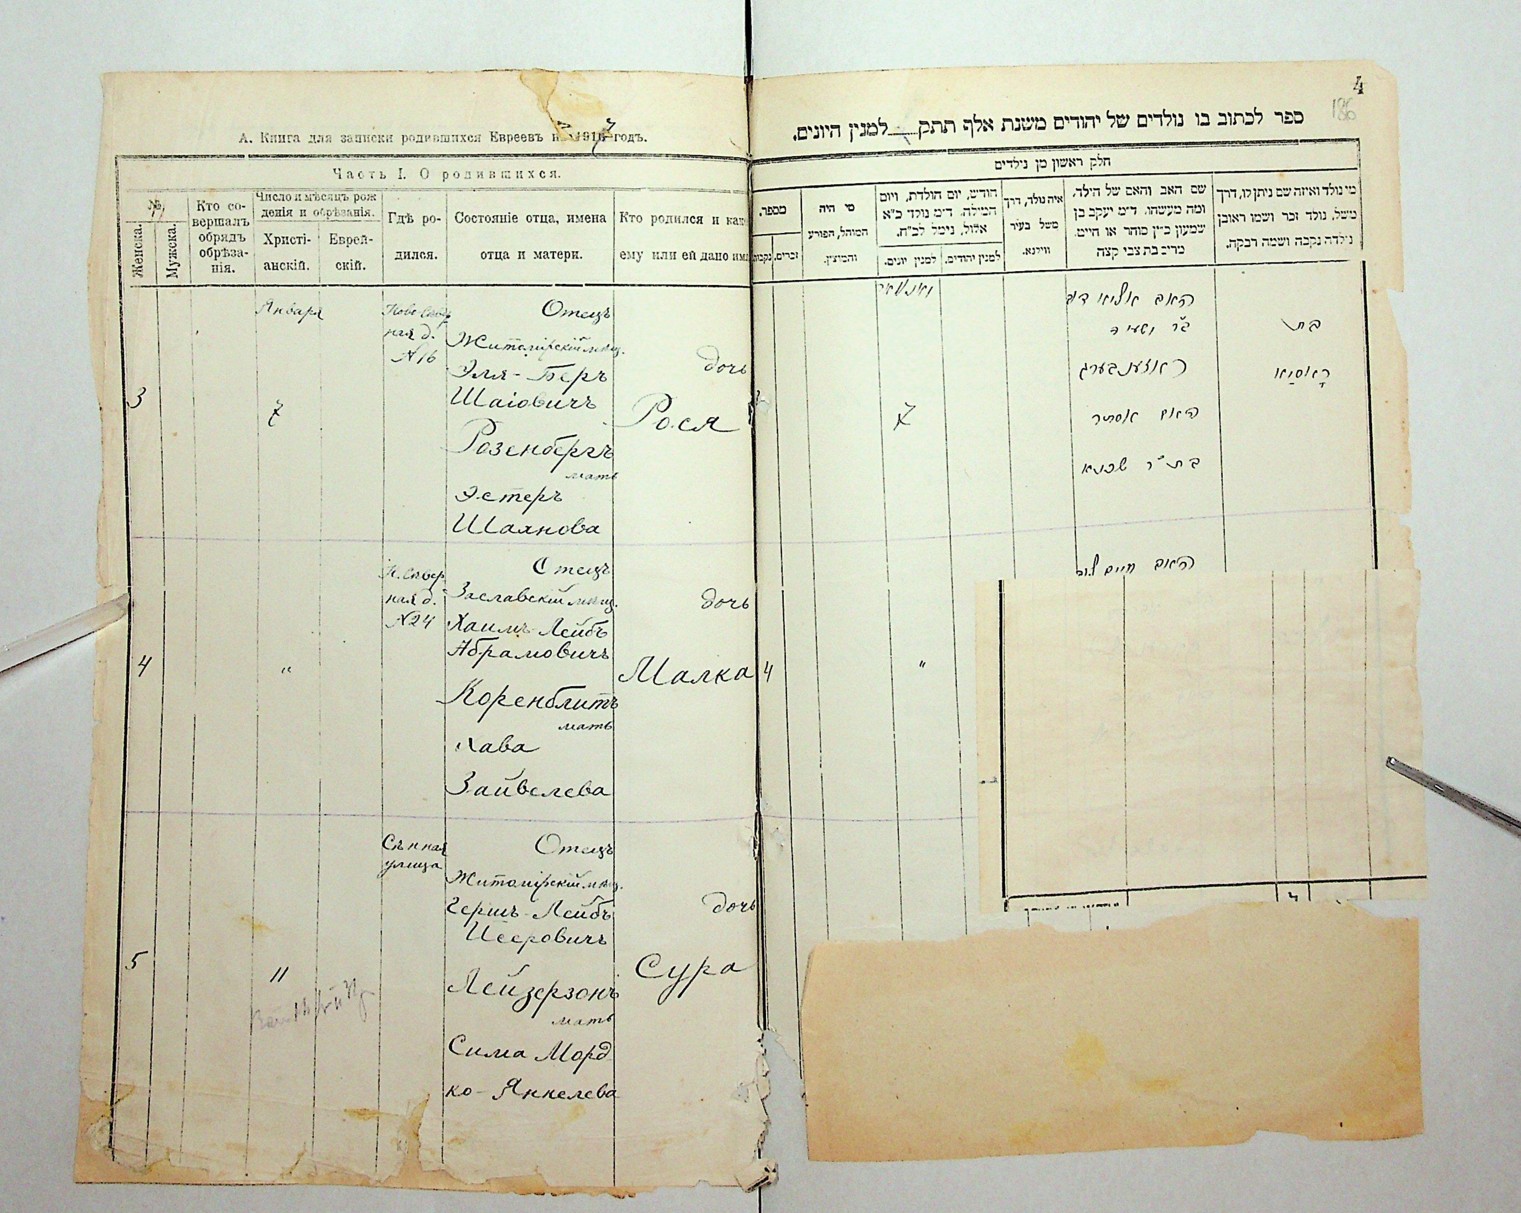 А. Книга для записки родившихся Евреевъ на 1917 годъ.
Часть I. О родившихся.
№
Женска.
Мужска.
Кто совершалъ обрядъ обрѣзанія.
Число и мѣсяцъ рожденія и обрѣзанія.
Христіанскій.
Еврейскій.
Гдѣ родился.
Состояніе отца, имена отца и матери.
Кто родился и какое ему или ей дано имя
3
Января
7
ная д.
№16
Отецъ
Житомірскій мѣщ.
Эля-Беръ
Шаіовичъ
Розенбергъ
мать
Эстеръ
Шаянова
дочь
Рося
4
"
ная д.
№24
Отецъ
Заславскій мѣщ.
Хаимъ-Лейбъ
Абрамовичъ
Коренблитъ
мать
Хава
Зайвелева
дочь
Малка
5
"
Сѣнная
улица
Отецъ
Житомірскій мѣщ.
Гершъ-Лейбъ
Исеровичъ
Лейзерзонъ
мать
Сима Морд
ко-Янкелева
дочь
Сура
4
186
ספר לכתוב בו נולדים של יהודים משנת אלף תתק למנין היונים.
חלק ראשון מן נולדים
מי נולד ואיזה שם ניתן לו, דרך
משל, נולד זכר ושמו ראובן
נולדה נקבה ושמה רבקה.
שם האב והאם של הילד,
ומה מעשהו. ד״מ יעקב בן
שמעון כ״ץ סוחר או חייט.
מרים בת צבי קצה
איה נולד, דרך
משל בעיר
ווילנא.
חודש, יום הולדת, ויום
המילה. ד״מ נולד כ״א
אלול, נימל לכ״ח.
למנין יהודים.
למנין יונים.
מי היה
המוהל, הפורע
והמוצץ.
מספר.
זכרים.
נקבות
יאנואר
7
האב אליאי דוב
ב״ר ישעיה
ראזענבערג
האם אסתר
בת ר׳
בת
ראסיא
4
"
האב חיים ליב